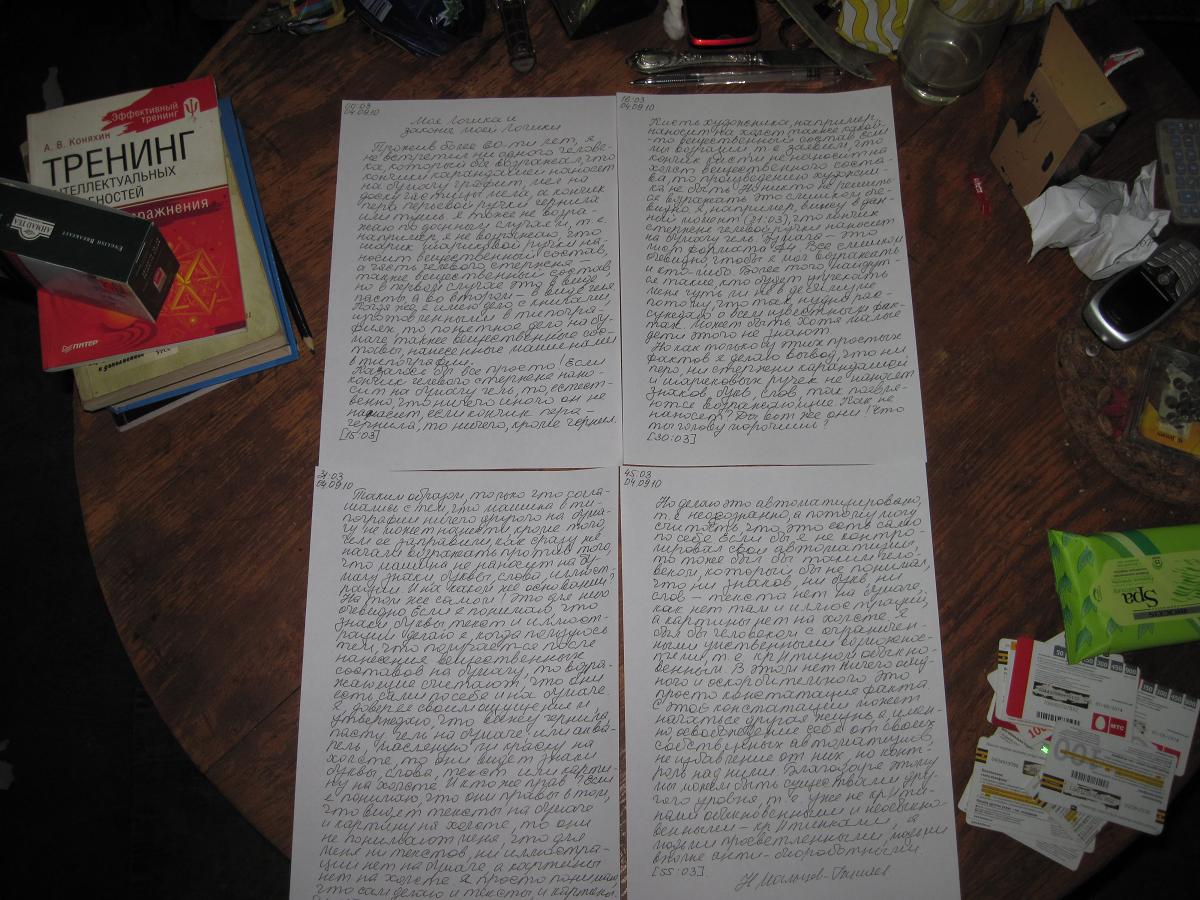 Эффективный
тренинг
А. В. Коняхин
ТРЕНИНГ
ИНТЕЛЛЕКТУАЛЬНЫХ
упражнения
ПИТЕР
AHMAD TEA
ENGLISH BREAKFAST
00:03
04.09.10
Моя логика и
законы моей логики
Прожив более 60-ти лет, я
не встретил ни одного челове-
ка, который бы возражал, что
кончики карандашей наносят
на бумагу графит, мел на
доске частицы мела, а кончик
пера перьевой ручки чернила
или тушь. Я тоже не возра-
жаю по данным случаям, т.е.
например, я не возражаю, что
шарик шариковой ручки на-
носит вещественный состав,
а часть гелевого стержня –
также вещественный состав,
но в первом случае это в виде
пасты, а во втором – в виде геля
Когда же я имею дело с книгами,
изготовленными в типогра-
фиях, то понятное дело на бу-
маге также вещественные сос-
тавы, нанесенные машинами
в типографии.
Казалось бы все просто! Если
кончик гелевого стержня нано-
сит на бумагу гель, то, естест-
венно, что ничего иного он не
нанесет, если кончик пера –
чернила, то ничего, кроме чернил.
[15:03]
16:03
04.09.10
Кисть художника, например,
наносит на холст также какой-
то вещественный состав. Если
мы возразим, т.е. заявим, что
кончик кисти не наносит на
холст вещественного соста-
ва, то произведений художни-
ка не быть. Но никто не решить-
ся возражать. Это слишком оче-
видно. Я, например, вижу в дан-
ный момент (21:03), что кончик
стержня гелевой ручки наносит
на бумагу гель. Бумага – это
лист формата А4. Все слишком
очевидно, чтобы я мог возражать
и кто-либо. Более того, найдут-
ся такие, кто будет упрекать
меня чуть ли не в десимуле
потому, что так нудно рас-
суждаю о всем известным фак-
там. Может быть хотя малые
дети этого не знают.
Но как только из этих простых
фактов я делаю вывод, что ни
перо, ни стержни карандашей
и шариковых ручек не наносят
знаков, букв, слов, так появля-
ются возражающие. Как не
наносят? Да вот же они! Что
ты голову морочишь?
[30:03]
31:03
04.09.10
Таким образом, только что согла-
шались с тем, что машина в ти-
пографии ничего другого на бума-
гу не может нанести, кроме того,
чем ее заправили, как сразу же
начали возражать против того,
что машина не наносит на бу-
магу знаки, буквы, слова, иллюст-
рации. И на каком же основании?
На том же самом! Это для них
очевидно. Если я понимаю, что
знаки, буквы, текст и иллюст-
рации делаю я, когда пользуюсь
тем, что получается после
нанесения вещественных
составов на бумагу, то возра-
жающие считают, что они
есть сами по себе и на бумаге.
Я, доверяя своим ощущениям,
утверждаю, что вижу чернила,
пасту, гель на бумаге, или аква-
рель, масляную ли краску на
холсте, то они видят знаки
буквы, слова, текст или карти-
ну на холсте. И кто же прав? Если
я понимаю, что они правы в том,
что видят тексты на бумаге
и картину на холсте, то они
не понимают меня, что для
меня ни текстов, ни иллюстра-
ций нет на бумаге, а картины
нет на холсте. Я просто понимаю,
что сам делаю и тексты, и картины.
45:03
04.09.10
Но делаю это автоматизировано,
т.е. неосознанно, а потому могу
считать, что это есть само
по себе. Если бы я не контро-
лировал свои автоматизмы,
то тоже был бы таким чело-
веком, который бы не понимал,
что ни знаков, ни букв, ни
слов – текста нет на бумаге,
как нет там и иллюстраций,
а картины нет на холсте. Я
был бы человеком с ограничен-
ными умственными возможнос-
тями, т.е. крИтином обыкно-
венным. В этом нет ничего обид-
ного и оскорбительного. Это
просто констатация факта.
С этой констатации может
начаться другая жизнь, а имен-
но освобождение себя от своих
собственных автоматизмов,
не избавление от них, но конт-
роль над ними. Благодаря этому
мы можем быть существами дру-
гого уровня, т.е. уже не крИти-
нами обыкновенными и необыкно-
венными – крИтинками, а
людьми просветленными, людьми
вполне анти-биороботными.
[55:03]
Spa
МТС
100